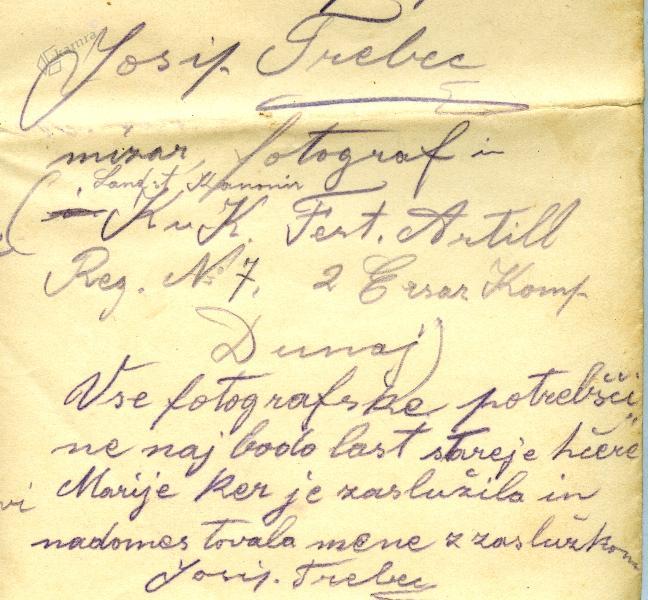 kamra
Josip Trebec
mizar, fotograf in
Landst Kanonir
(K u K. Fest. Artill
Reg. No 7, 2 Ersaz Komp.
Dunaj)
Vse fotografske potrebšči
ne naj bodo last stareje hčere
Marije ker je zaslužila in
nadomestovala mene z zaslužkom
Josip Trebec